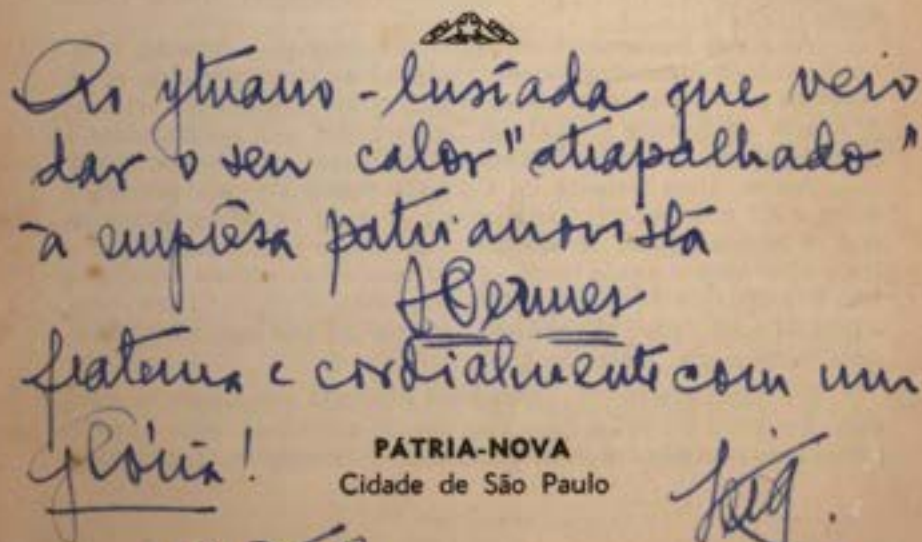 Ao ytuano-lusíada que veio
dar o seu calor "atrapalhado"
à emprêsa patrianovista
Hermes
fraterna e cordialmente com um
glória!
PÁTRIA-NOVA
Cidade de São Paulo